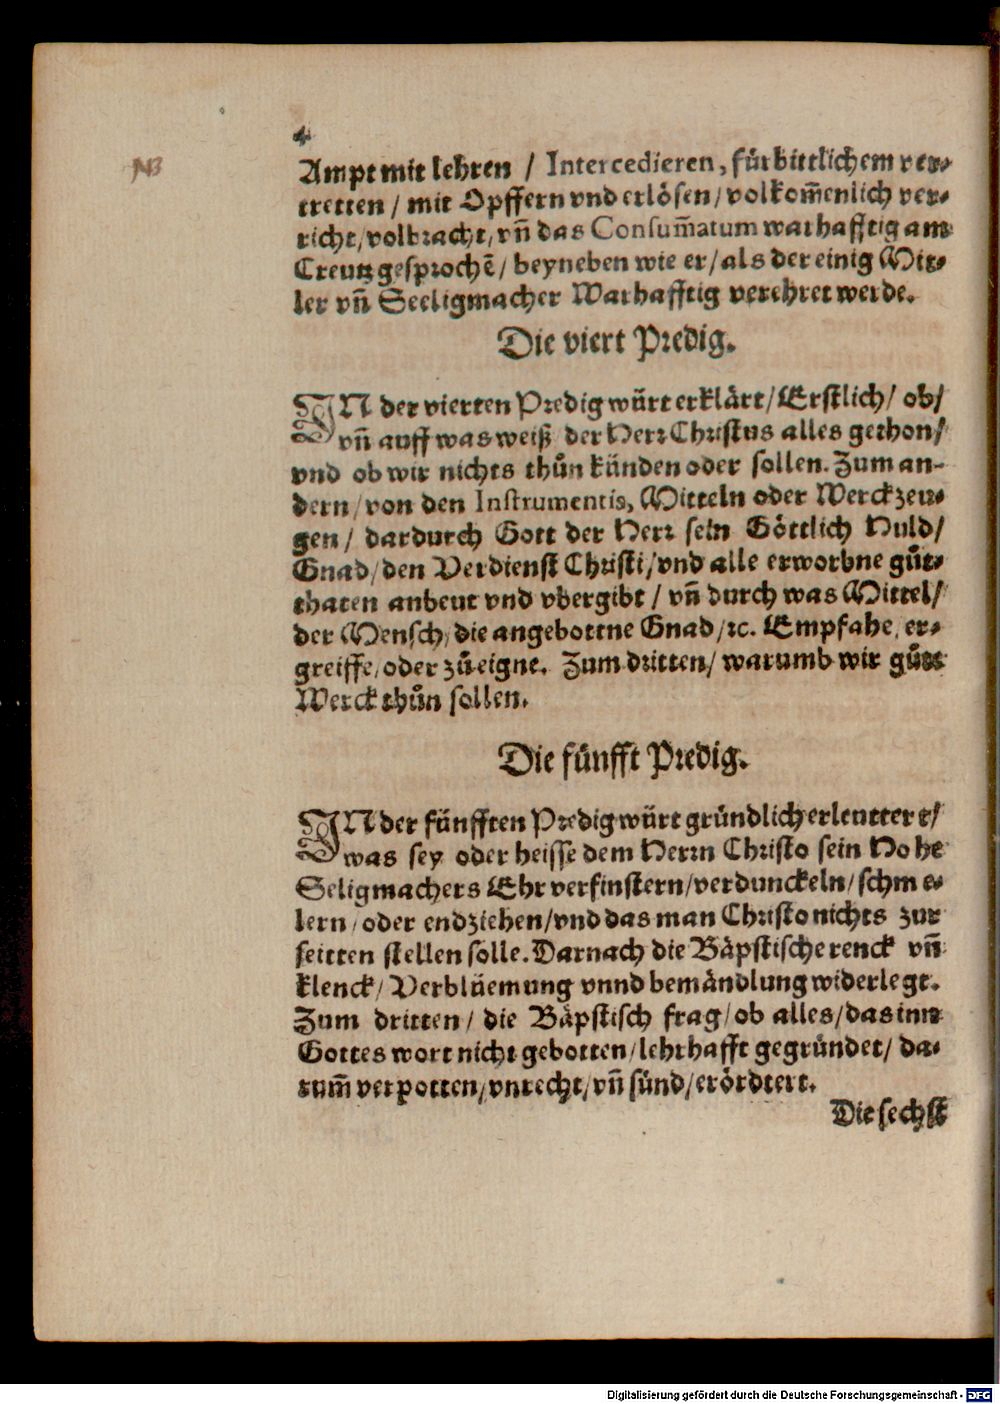 4
NB
Ampt mit lehren / Intercedieren, fürbittlichem ver-
tretten / mit Opffern vnd erlösen / volkom̃enlich ver-
richt / volbracht / vñ das Consum̃atum warhafftig am
Creutz gesprochẽ / beyneben wie er / als der einig Mit-
ler vñ Seeligmacher Warhafftig verehret werde.
Die viert Predig.
IN der vierten Predig würt erklärt / Erstlich / ob /
vñ auff was weiß der Herr Christus alles gethon /
vnd ob wir nichts thůn künden oder sollen. Zum an-
dern / von den Instrumentis, Mitteln oder Werckzeu-
gen / dardurch Gott der Herr sein Göttlich Huld /
Gnad / den Verdienst Christi / vnd alle erworbne gůt-
thaten anbeut vnd vbergibt / vñ durch was Mittel /
der Mensch / die angebottne Gnad / ꝛc. Empfahe, er-
greiffe / oder zůeigne. Zum dritten / warumb wir gůte
Werck thůn sollen.
Die fünfft Predig.
IN der fünfften Predig würt gründlich erleuttert /
was sey oder heisse dem Herrn Christo sein Hohe
Seligmachers Ehr verfinstern / verdunckeln / schme-
lern / oder endziehen / vnd das man Christo nichts zur
seitten stellen solle. Darnach die Bäpstische renck vñ
klenck / Verblüemung vnnd bemändlung widerlegt.
Zum dritten / die Bäpstisch frag / ob alles / das inn
Gottes wort nicht gebotten / lehrhafft gegründet / da-
rum̃ verpotten / vnrecht / vñ sünd / erördtert.
Die sechst
Digitalisierung gefördert durch die Deutsche Forschungsgemeinschaft - DFG